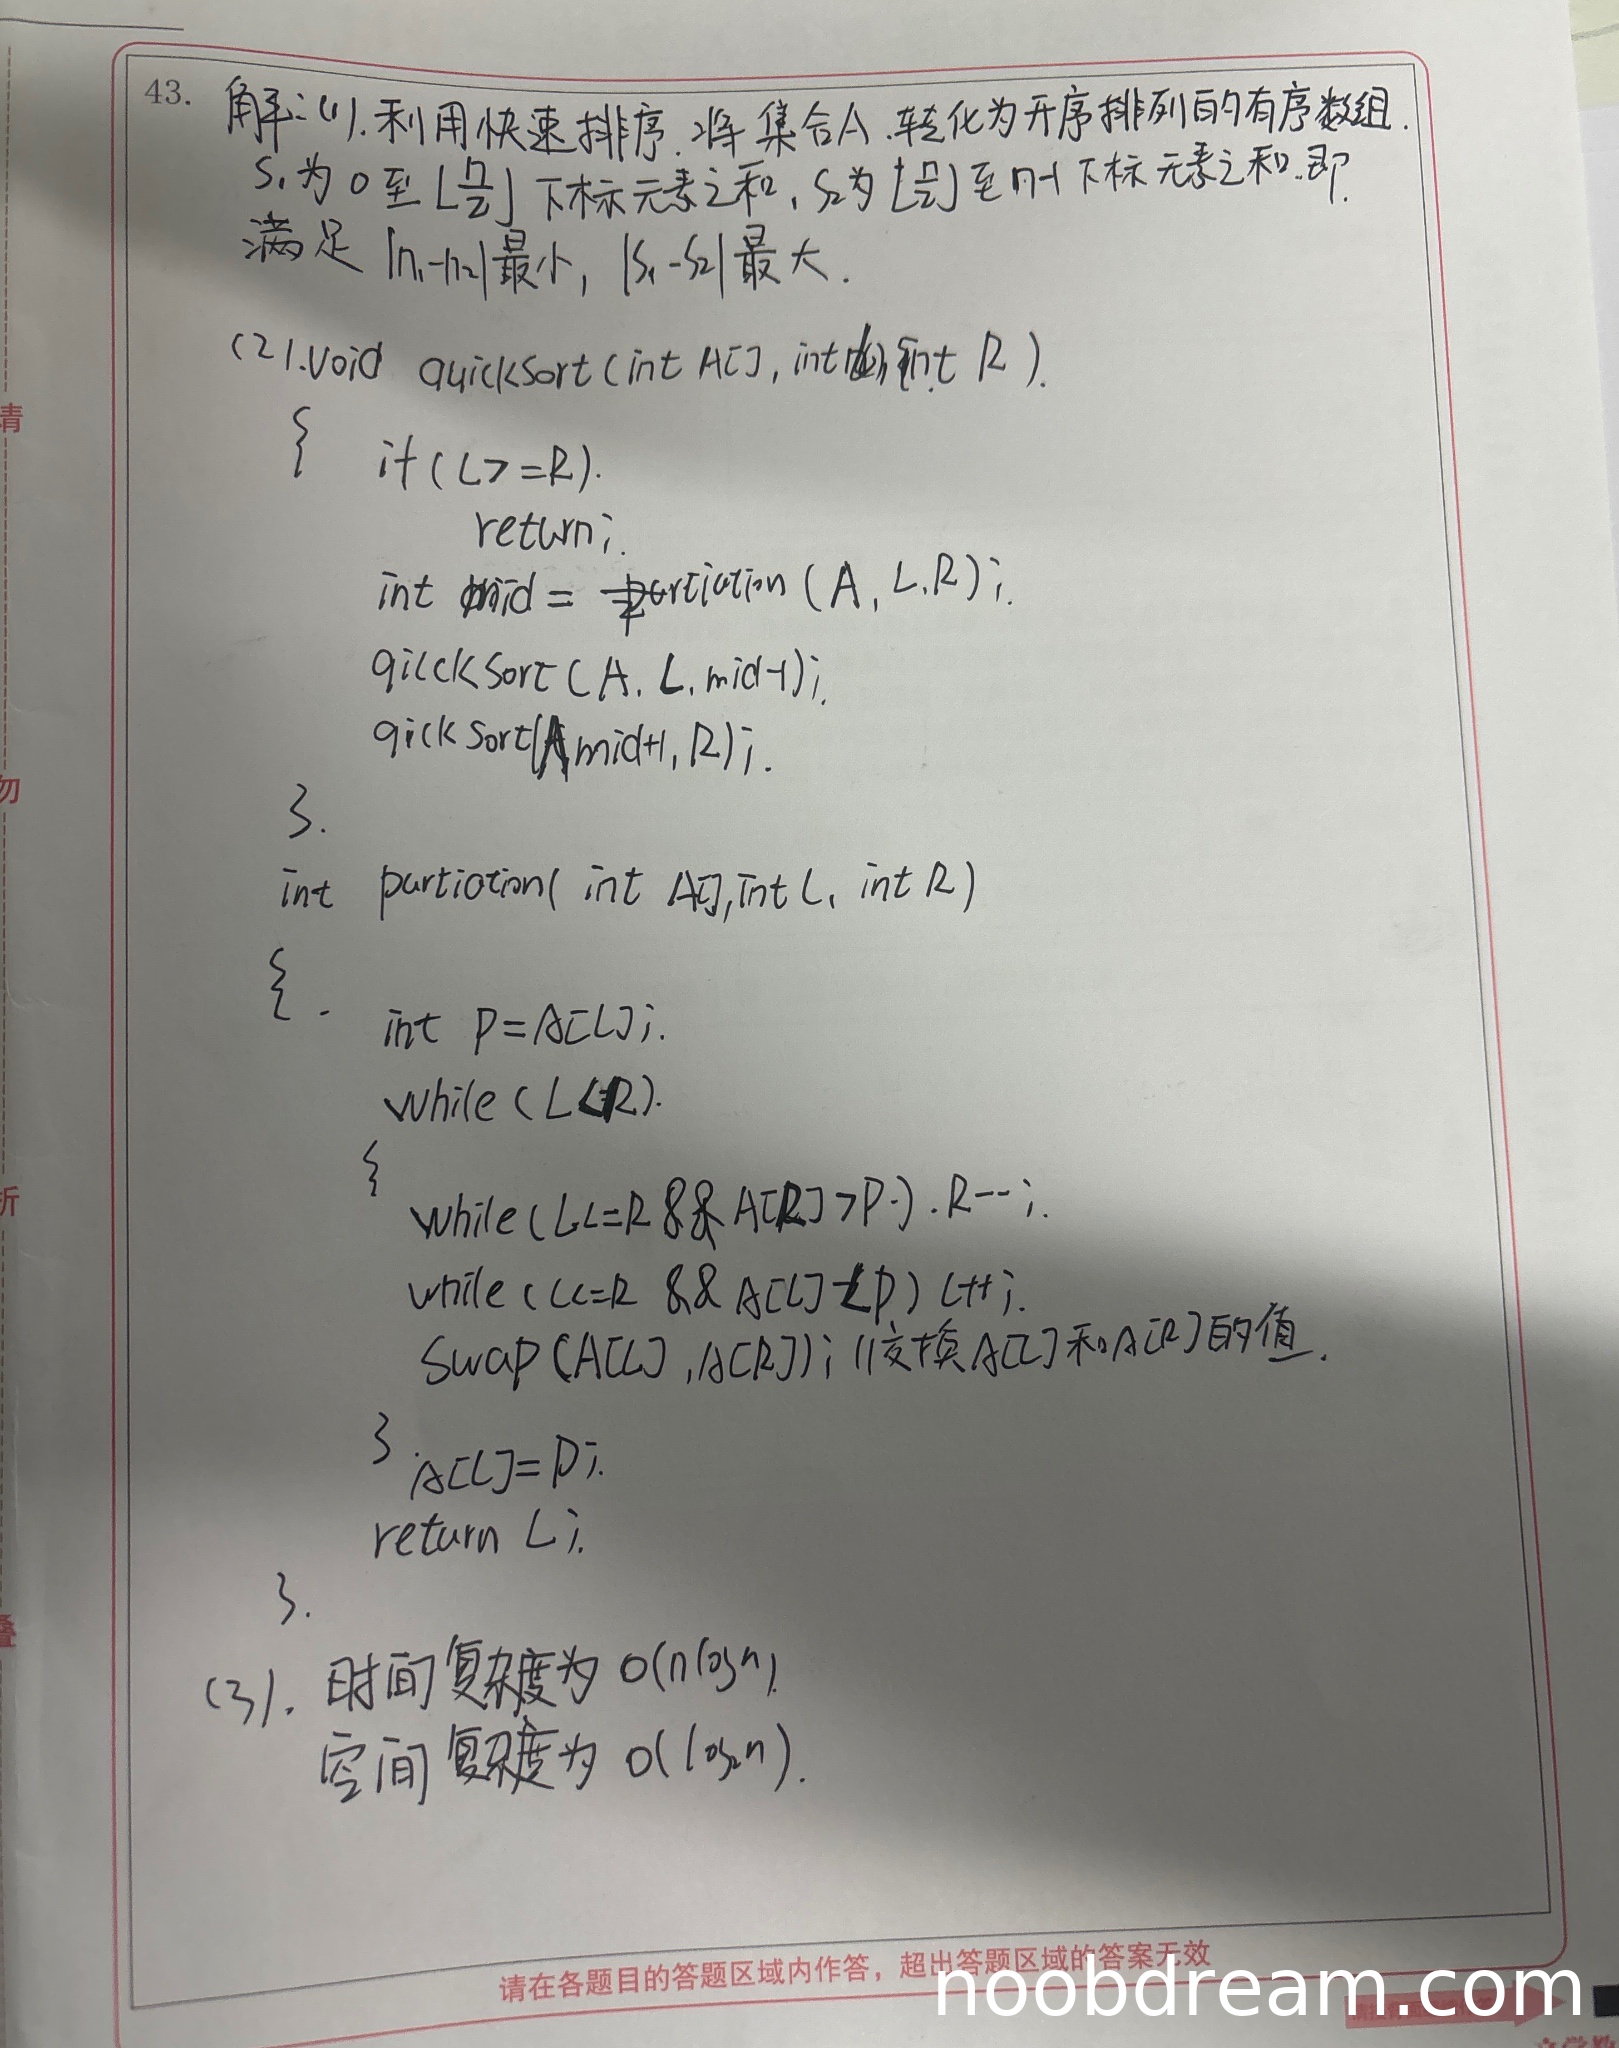 43. 解:(1).利用快速排序.将集合A.转化为升序排列的有序数组.
S₁为0至⌊n/2⌋下标元素之和,S₂为⌊n/2⌋至n-1下标元素之和.即.
满足|n₁-n₂|最小,|S₁-S₂|最大.
(2).void quickSort(int A[], int L, int R).
{ if(L>=R).
return;
int mid = partiotion(A, L, R);
qicckSort(A, L, mid-1);
qickSort(A, mid+1, R);
}.
int partiotion( int A[], int L, int R)
{.
int P=A[L];
while(L<R).
{
while(L<=R && A[R]>P.).R--;
while(L<=R && A[L]<P) L++;
Swap(A[L],A[R]); //交换A[L]和A[R]的值.
}
A[L]=P;
return L;
}.
(3). 时间复杂度为O(nlog₂n)
空间复杂度为O(log₂n).
请在各题目的答题区域内作答,超出答题区域的答案无效
noobdream.com
请
勿
折
叠